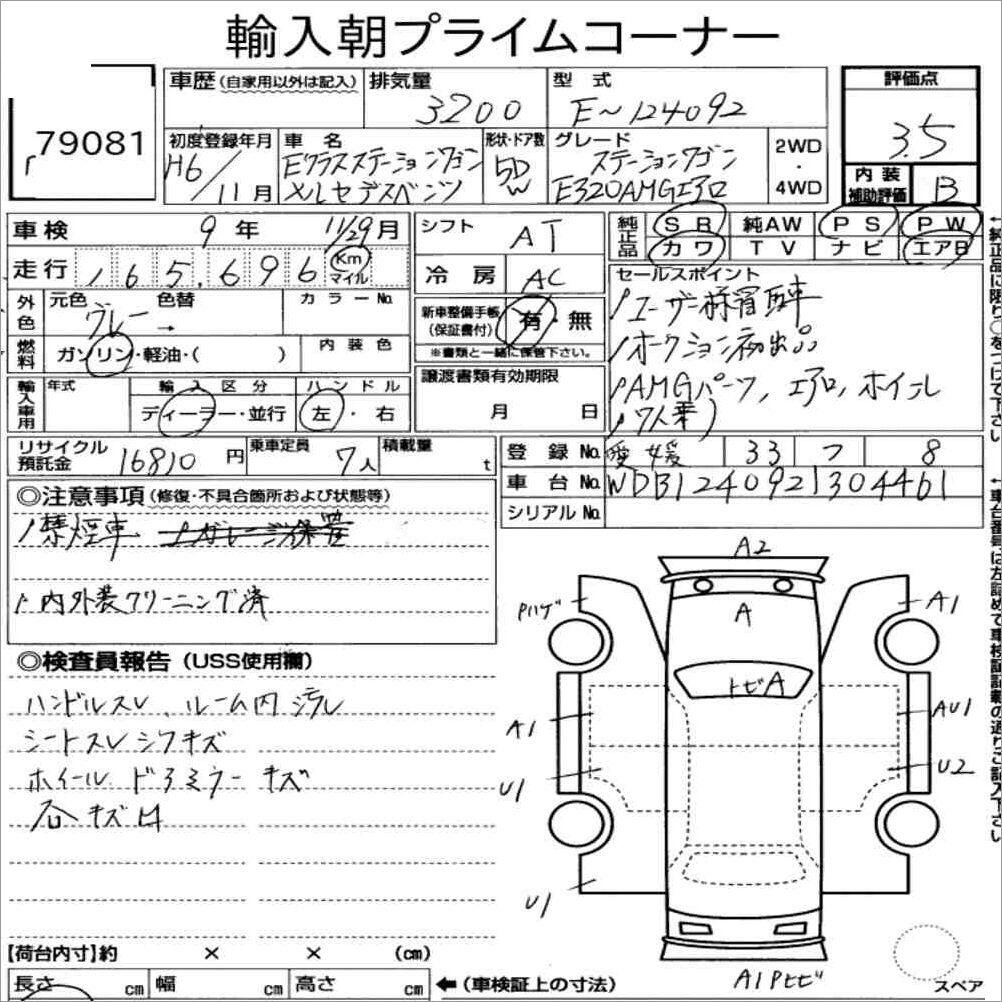 輸入朝プライムコーナー
79081
車歴(自家用以外は記入)
排気量 3200
型式 E〜124092
評価点 3.5
初度登録年月 H6/11月
車名 Eクラスステーションワゴン
メルセデスベンツ
形状・ドア数 5D W
グレード ステーションワゴン
E320AMGエアロ
2WD
・
4WD
内装
補助評価 B
車検 9年 11/29月
シフト AT
純正品 SR 純AW PS PW
カワ TV ナビ エアB
走行 165,696 Km
マイル
冷房 AC
セールスポイント
ユーザー様買取車
オークション初出品
AMGパーツ、エアロ、ホイール
7人乗り
外色 元色 色替 カラーNo.
グレー →
新車整備手帳
(保証書付) 有・無
※書類と一緒に保管下さい。
燃料 ガソリン・軽油・( ) 内装色
輸入車用 年式 輸入区分 ハンドル
ディーラー・並行 左・右
譲渡書類有効期限
月 日
リサイクル
預託金 16810円 乗車定員 7人 積載量 t
登録No. 愛媛 33 フ 8
車台No. WDB1240921304461
シリアルNo.
◎注意事項(修復・不具合箇所および状態等)
禁煙車 ガレージ保管
内外装クリーニング済
◎検査員報告(USS使用欄)
ハンドルスレ、ルーム内汚レ
シートスレシワキズ
ホイール ドアミラーキズ
石キズ
A2
A
Pハゲ
A1
トビA
A1
AU1
U1
U2
U1
A1Pトビ
スペア
【荷台内寸】約 × × (cm)
長さ cm 幅 cm 高さ cm ←(車検証上の寸法)
←純正品に限り○をつけて下さい
←車台番号は左詰めで車検証記載の通りご記入下さい